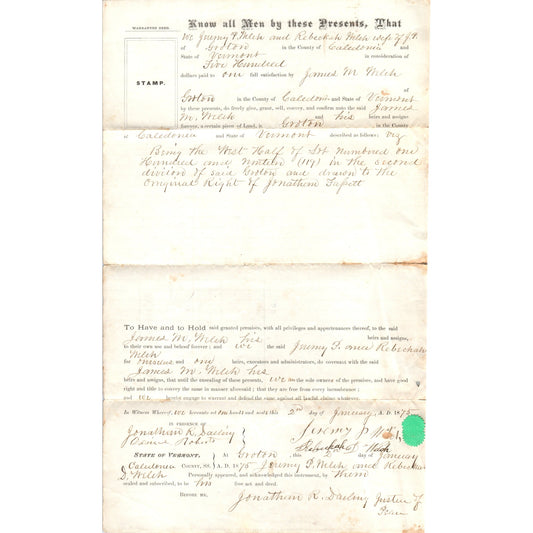 WARRANTEE DEED.
Know all Men by these Presents, That
We Jeremy P. Welch and Rebeckah Welch wife of J P.
of Groton in the County of Caledonia and
State of Vermont in consideration of
Five Hundred
STAMP.
dollars paid to our full satisfaction by James M. Welch
Groton in the County of Caledonia and State of Vermont
by these presents, do freely give, grant, sell, convey, and confirm unto the said James
M. Welch and his heirs and assigns
forever, a certain piece of Land, in Groton in the County
of Caledonia and State of Vermont described as follows: viz
Being the West Half of Lot numbered one
Hundred and nineteen (119) in the second
division of said Groton and drawn to the
original Right of Jonathan
To Have and to Hold said granted premises, with all privileges and appurtenances thereof, to the said
James M. Welch his heirs and assigns,
to their own use and behoof forever; and we the said Jeremy P. and Rebeckah
Welch
for ourselves and our heirs, executors and administrators, do covenant with the said
James M. Welch his
heirs and assigns, that until the ensealing of these presents, we are the sole owners of the premises, and have good
right and title to convey the same in manner aforesaid; that they are free from every incumbrance;
and we hereby engage to warrant and defend the same against all lawful claims whatever.
In Witness Whereof, we hereunto set our hand and seal this 2nd day of January A. D. 1875
IN PRESENCE OF
Jonathan R. Darling
Roberts
Jeremy P Welch
Rebeckah Welch
STATE OF VERMONT, At Groton, this 2 day of January
Caledonia COUNTY, SS. A. D. 1875 Jeremy P. Welch and Rebeckah
D. Welch Personally appeared, and acknowledged this instrument, by them
sealed and subscribed, to be his free act and deed.
BEFORE ME, Jonathan R. Darling Justice of
Peace